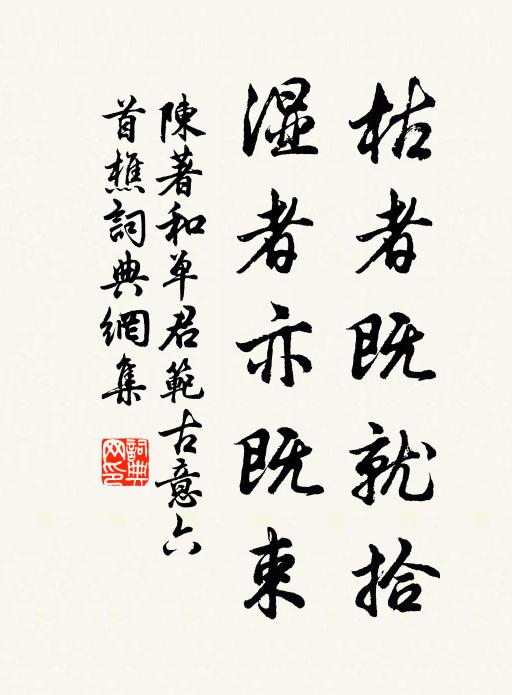 枯者既就拾
湿者亦既束
陳著和单君範古意六
首樵詞典網集
詞典网印